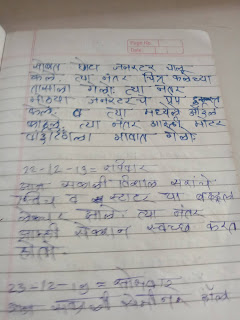 Page No.
Date
जावत छोटा जनरटर चालू
केले. त्या नंतर चित्र कलेच्या
तासाला गेलो. त्या नंतर
मोठ्या जनरटरचे पंप
केले. व त्या मधील ऑइल
काढले. त्या नंतर आम्ही मोटर
वाईंडिंगला गावात गेलो.
22-12-13 = रविवार
आज सकाळी विशाल सरांनी
व स्टाटर या बद्दल
लेक्चर झाले. त्या नंतर
आम्ही सेक्शन स्वच्छ करत
होतो.
23-12-13 = सोमवार
आज सकाळी हॉल